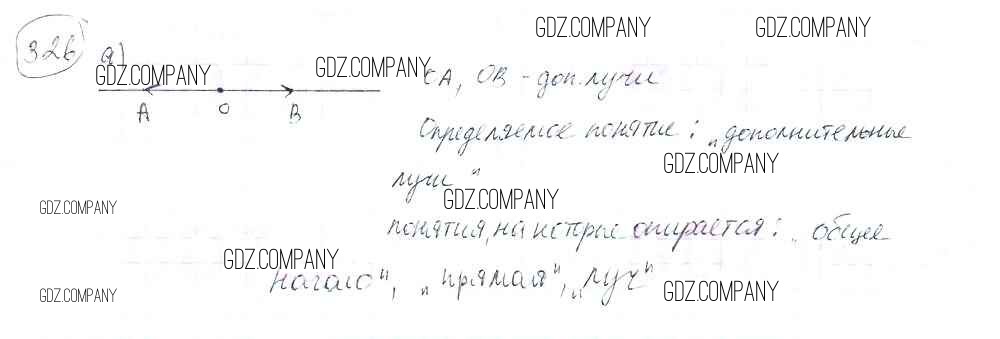 326 а)
GDZ.COMPANY GDZ.COMPANY
GDZ.COMPANY GDZ.COMPANY ОА, ОВ - доп. лучи
А О В
Определяемое понятие: „дополнительные
GDZ.COMPANY
лучи"
GDZ.COMPANY GDZ.COMPANY
понятия, на которые опирается: „общее
GDZ.COMPANY
начало", „прямая", „луч"
GDZ.COMPANY GDZ.COMPANY